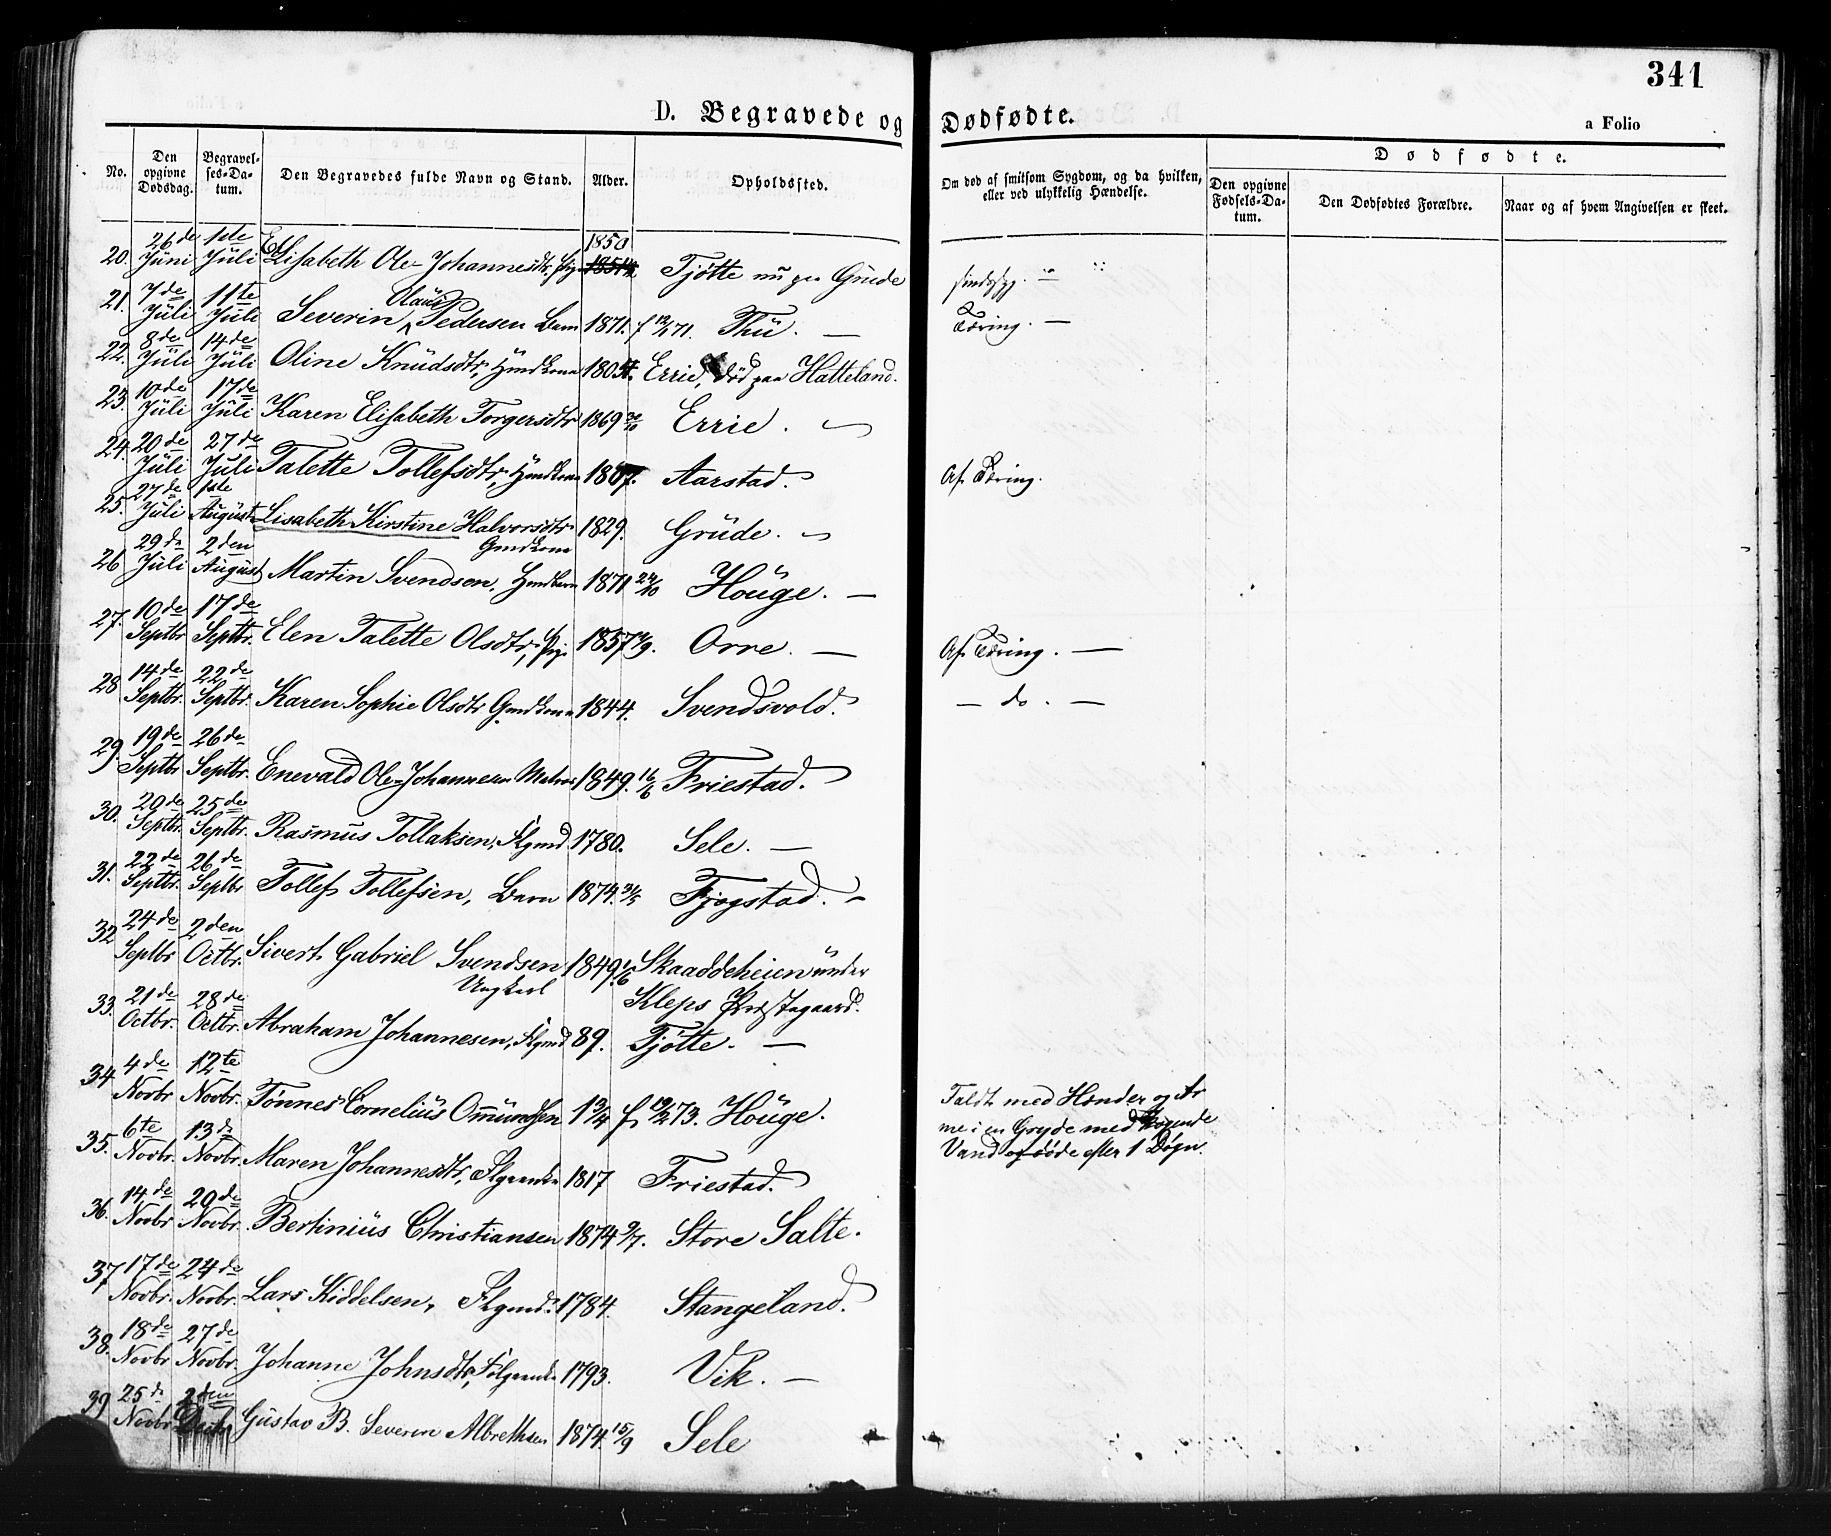 341
D. Begravede og Dødfødte.
a Folio
No.
Den opgivne Dødsdag.
Begravelses-Datum.
Den Begravedes fulde Navn og Stand.
Alder.
Opholdssted.
Om død af smitsom Sygdom, og da hvilken, eller ved ulykkelig Hændelse.
Dødfødte.
Den opgivne Fødsels-Datum.
Den Dødfødtes Forældre.
Naar og af hvem Angivelsen er skeet.
20. 26de Juni 1ste Juli Elisabeth Ole-Johannesdtr, Pige 1850 Tjøtte nu paa Grude sindssyg. —
21. 7de Juli 11te Juli Severin Olaus Pedersen Barn 1871. f 12/1 71. Thu. — Tæring. —
22. 8de Juli 14de Juli Oline Knudsdtr, Hmdkone Errie, død paa Hatteland.
23. 10de Juli 17de Juli Karen Elisabeth Torgersdtr 1869 30/10 Errie. —
24. 20de Juli 27de Juli Talette Tollefsdtr, Hmdkone 1807. Aarstad. Af Tæring.
25. 27de Juli 1ste August Lisabeth Kirstine Halvorsdtr 1829. Grude. —
Gmdkone
26 29de Juli 2den August Martin Svendsen, Hmdbarn 1871 24/10 Houge. —
27. 10de Septbr 17de Septbr. Elen Talette Olsdtr, Pige 1857 Orre. — Af Tæring. —
28 14de Septbr. 22de Septbr. Karen Sophie Olsdtr Gmdkone 1844. Svendsvold. — do. —
29. 19de Septbr 26de Septbr. Enevald Ole-Johannesen Matros 1849. 16/6 Friestad.
30. 20de Septbr. 25de Septbr. Rasmus Tollaksen, Flgmd 1780. Sele. —
31. 22de Septbr. 26de Septbr Tollef Tollefsen, Barn 1874. 31/5 Fjogstad. —
32 24de Septbr 2den Octbr. Sivert Gabriel Svendsen 1849. 1/6 Skaaddeheien under
Ungkarl Kleps Præstegaard.
33. 21de Octbr. 28de Octbr. Abraham Johannesen, Flgmd 89. Tjøtte. —
34 4de Novbr 12te Novbr. Tønnes Cornelius Omundsen 1 3/4 f 19/2 73. Houge. Faldt med Hænder og Ar
me i en Gryde med kogende
Vand og døde efter 1 Døgn.
35. 6te Novbr. 13de Novbr. Maren Johannesdtr, Flgenke 1817 Friestad.
36. 14de Novbr 20de Novbr. Bertinius Christiansen 1874 9/7. Store Salte.
37 17de Novbr. 24de Novbr. Lars Kiddelsen, Flgmd. 1784. Stangeland.
38. 18de Novbr 27de Novbr. Johanne Johnsdtr, Følgeenke 1793. Vik. —
39 25de Novbr 2den Decbr Gustav B. Severin Albrethsen 1874. 15/9 Sele